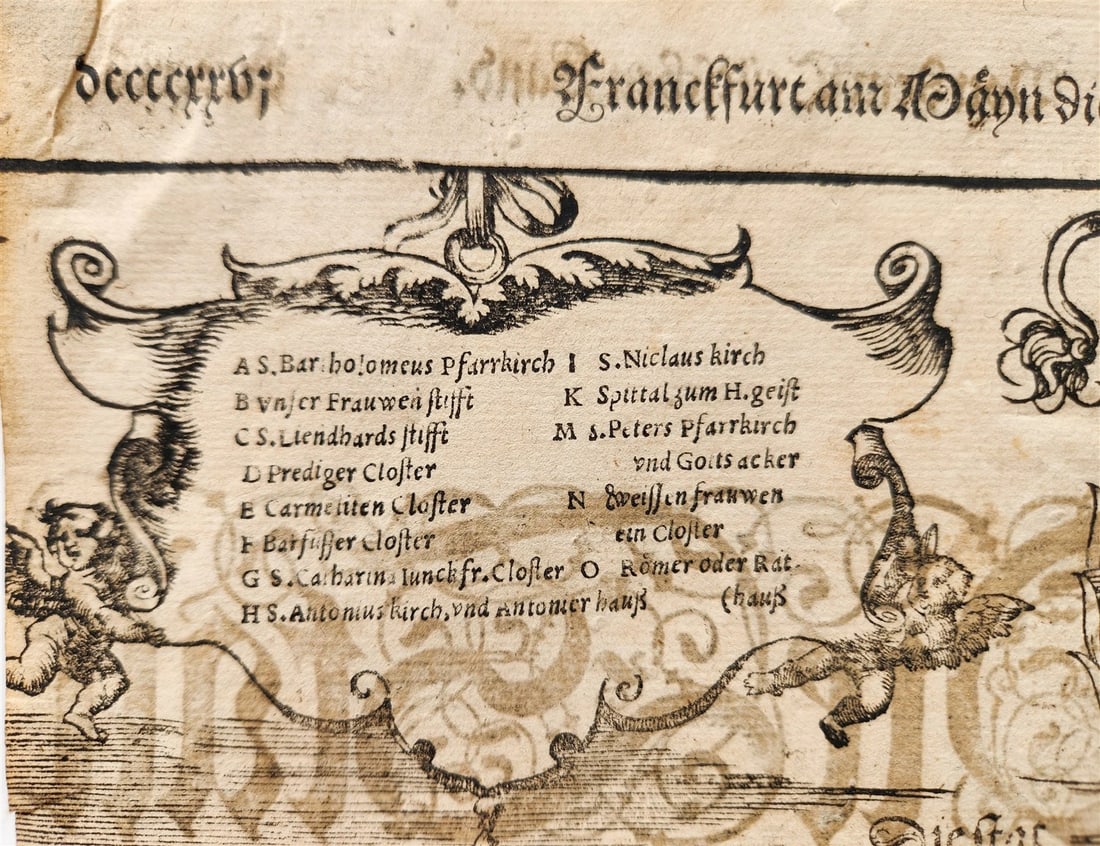 dccccxxvj
Franckfurt am Mäyn die
A S. Bartholomeus Pfarrkirch
B vnser Frauwen stifft
C S. Liendhards stifft
D Prediger Closter
E Carmeliten Closter
F Barfüsser Closter
G S. Catharina Iunckfr. Closter
H S. Antonius kirch, vnd Antonier hauß
I S. Niclaus kirch
K Spittal zum H. geist
M S. Peters Pfarrkirch
vnd Gotts acker
N Weissen frauwen
ein Closter
O Römer oder Rat-
(hauß